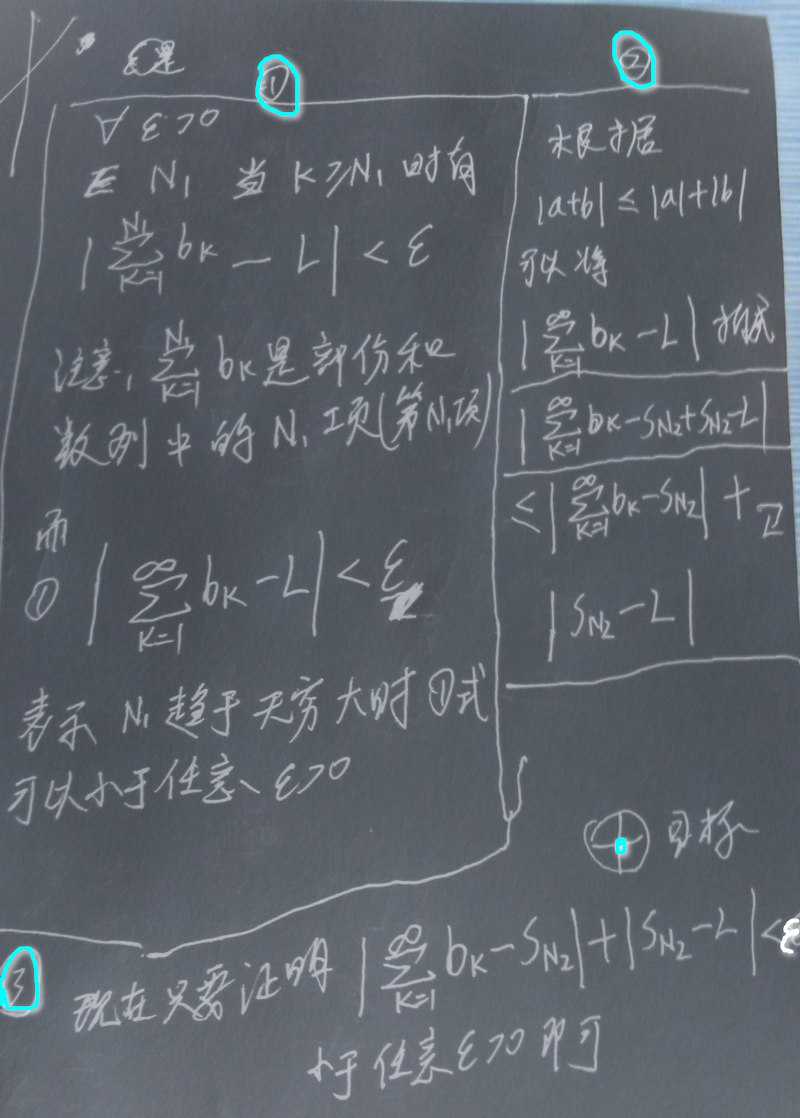 ①
∀ ε>0
∃ N₁ 当 K≥N₁ 时有
|∑_{K=1}^{N₁} b_K − L| < ε
注意, ∑_{K=1}^{N₁} b_K 是部份和
数列中的 N₁ 项(第N₁项)
而
① |∑_{K=1}^{∞} b_K − L| < ε
表示 N₁ 趋于无穷大时 ①式
可以小于任意 ε>0
②
根据
|a+b| ≤ |a|+|b|
可以将
|∑_{K=1}^{∞} b_K − L| 拆成
|∑_{K=1}^{∞} b_K − S_{N2} + S_{N2} − L|
≤ |∑_{K=1}^{∞} b_K − S_{N2}| +
|S_{N2} − L|
目标
③ 现在只要证明 |∑_{K=1}^{∞} b_K − S_{N2}| + |S_{N2} − L| < ε
小于任意 ε>0 即可